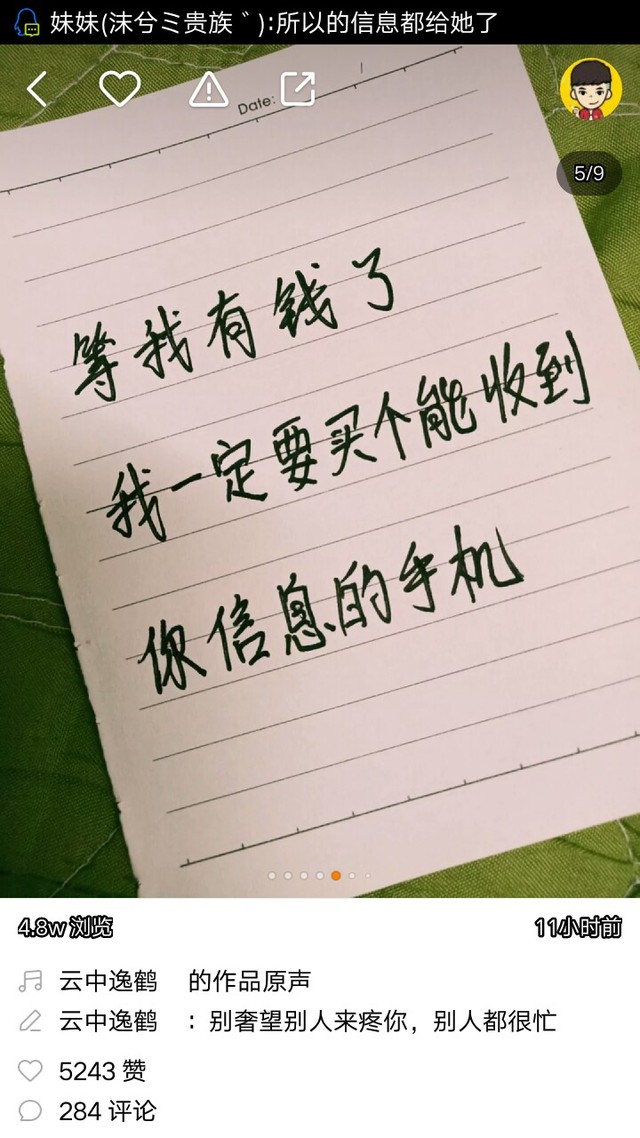 妹妹(沫兮ミ贵族゛):所以的信息都给她了
Date:
5/9
等我有钱了
我一定要买个能收到
你信息的手机
4.8w 浏览
11小时前
云中逸鹤 的作品原声
云中逸鹤 ：别奢望别人来疼你，别人都很忙
5243 赞
284 评论